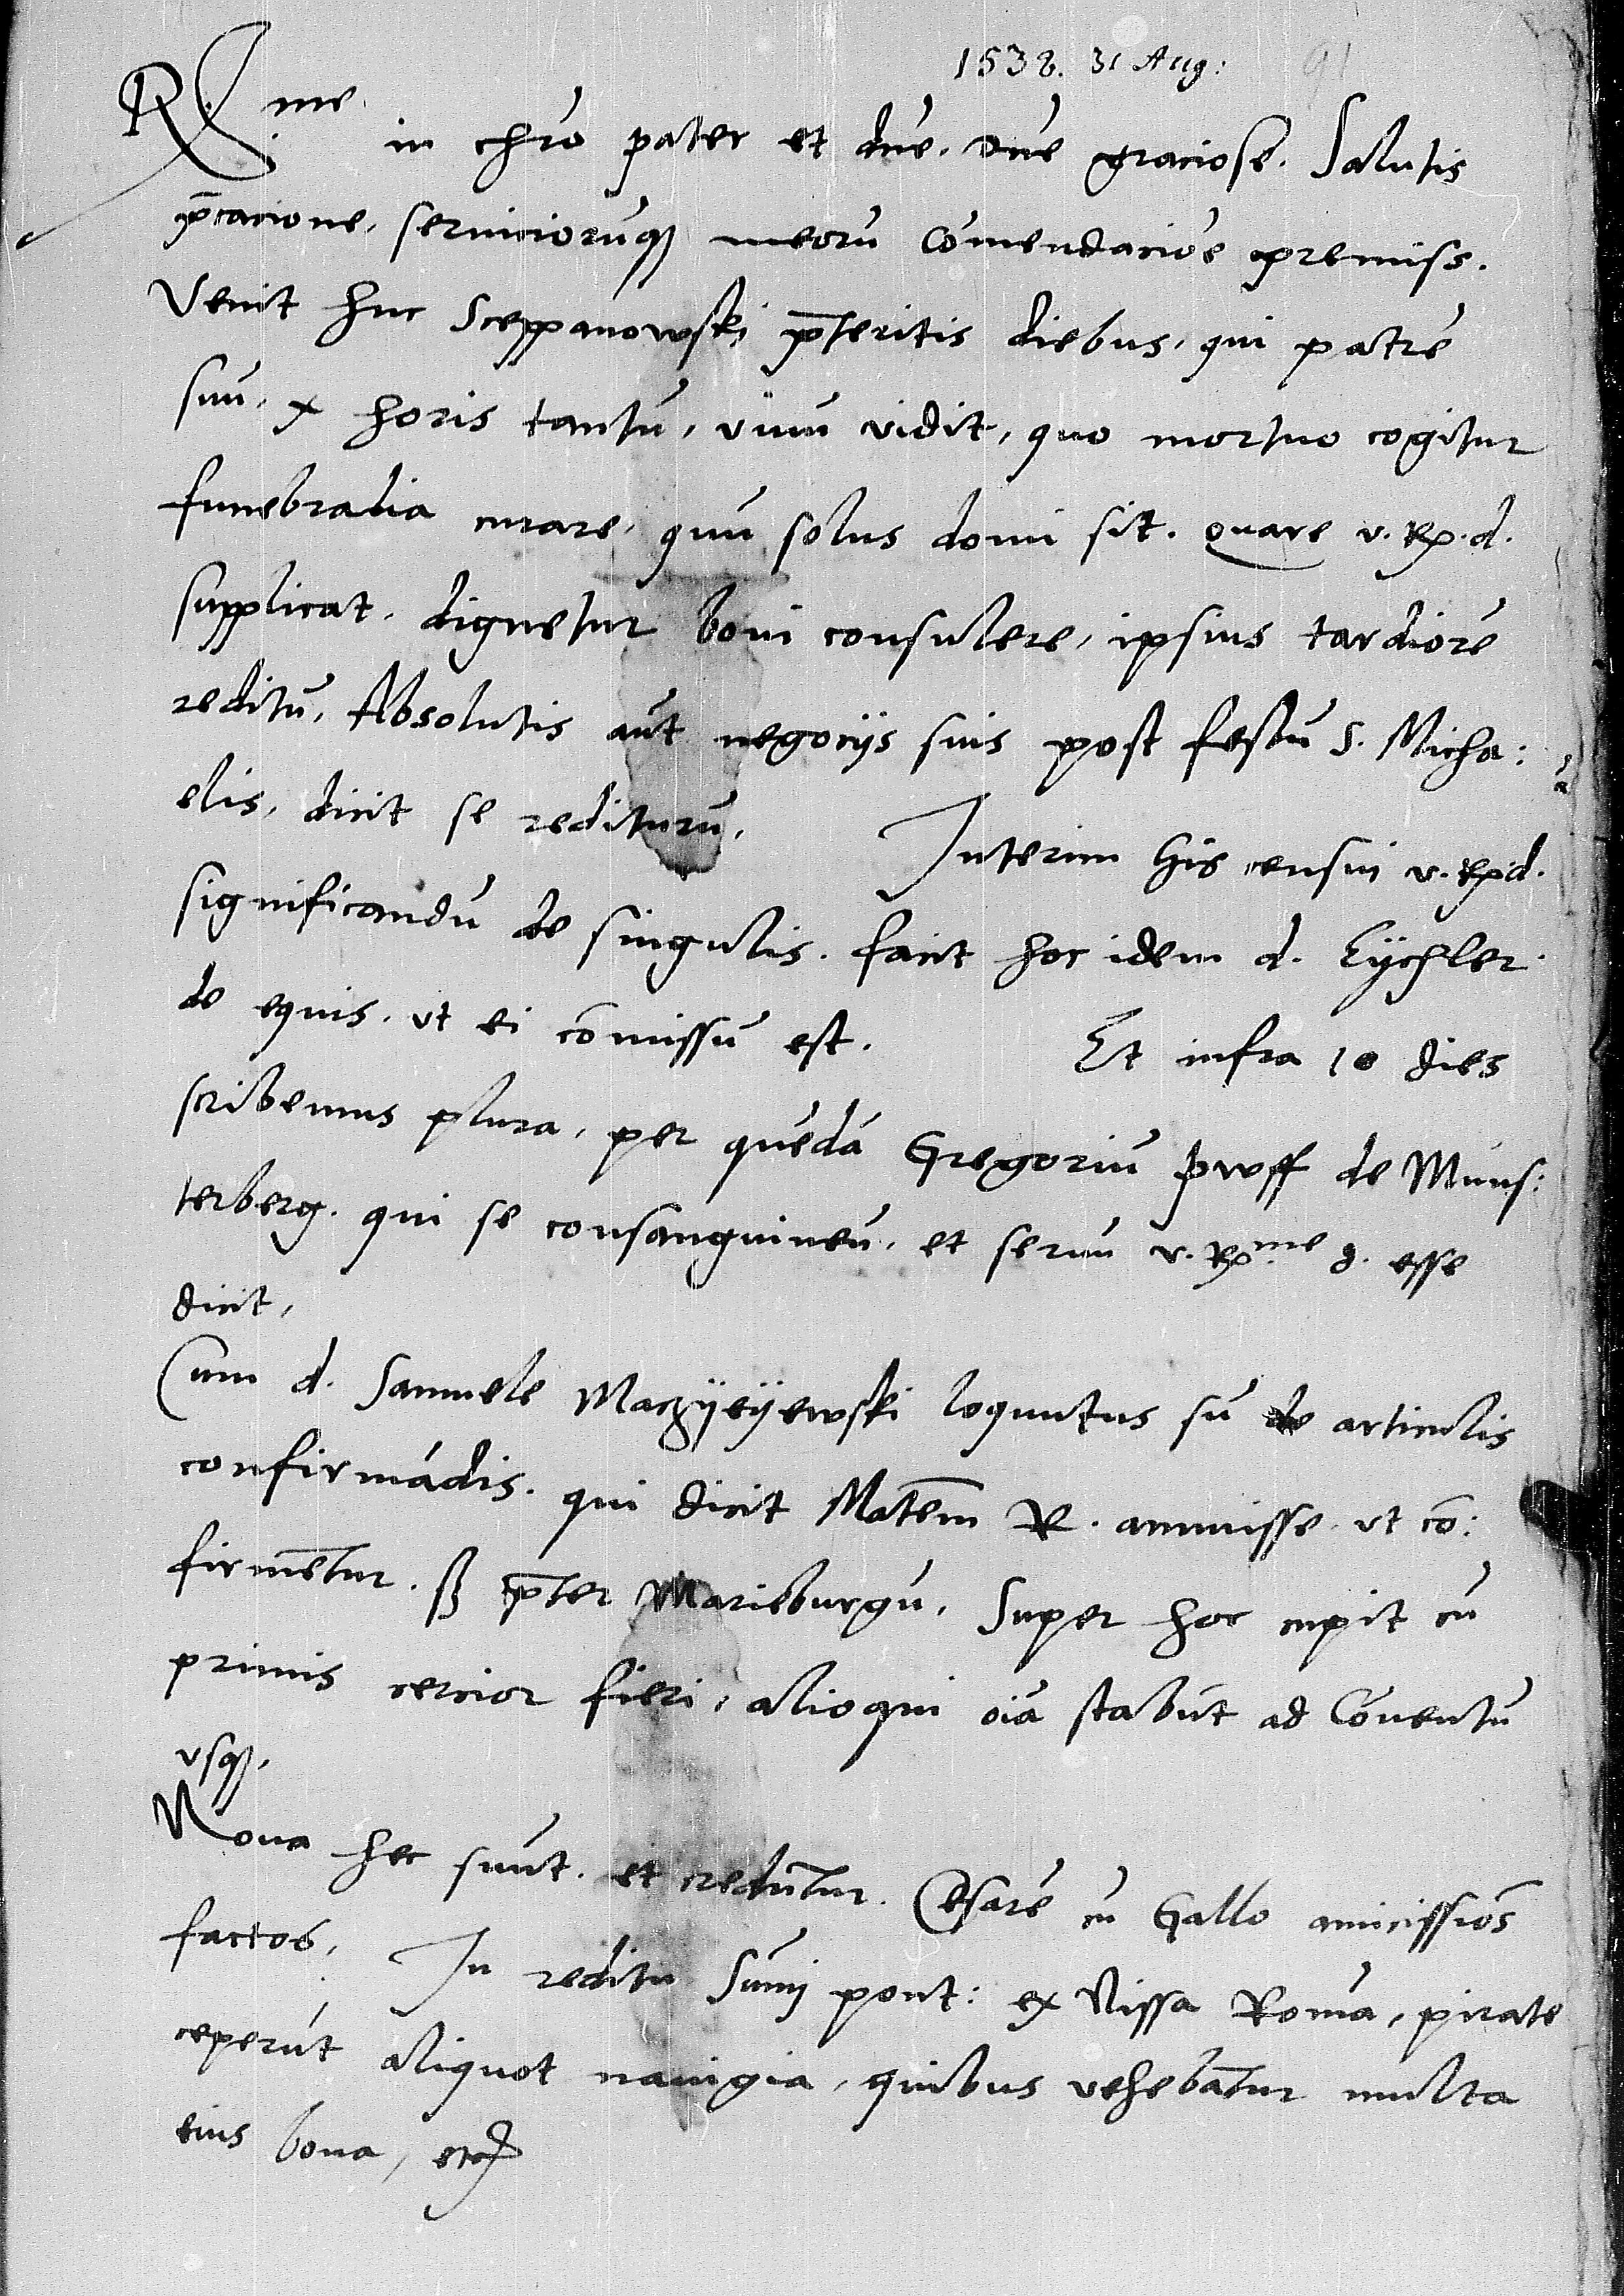 1538. 31 Aug: 91
R.me in chrō pater et dn̄e, dn̄e graciose. Salutis
p̄cacione, seruiciorūqȝ meorū Cōmendaciōe premiss.
Venit huc Sceppanowski p̄teritis diebus, qui patrē
suū, x horis tantū, viuū vidit, quo mortuo cogitur
funebralia curare, quū solus domi sit. quare v. Rp. d.
supplicat, dignetur boni consulere, ipsius tardiorē
reditū, Absolutis aūt negocijs suis post festū S. Micha:
elis, dicit se rediturū, Interim his censui v. Rp d.
significandū de singulis. facit hoc idem d. Eÿchler
de equis, vt ei cōmissū est. Et infra 10 dies
scribemus plura, per quēdā Gregoriū pwff de Muns:
terberg. qui se consanguineū, et seruū v. Rp.me d. esse
dicit,
Cum d. Samuele Maczÿeÿewski loquutus sū de articulis
confirmādis. qui dicit Matem̄ R. annuisse vt cō:
firmētur. sȝ p̄ter Marieburgū, Super hoc cupit cū
primis cercior fieri, alioqui oīa stabūt ad Cōuentū
vsqȝ.
Noua hec sunt. et credūtur. Cesarē cū Gallo amicissiōs
factos, In reditu Sūmi pont: ex Nissa Romā, pirate
ceperūt aliquot nauigia, quibus vehebātur multa
eius bona, etc